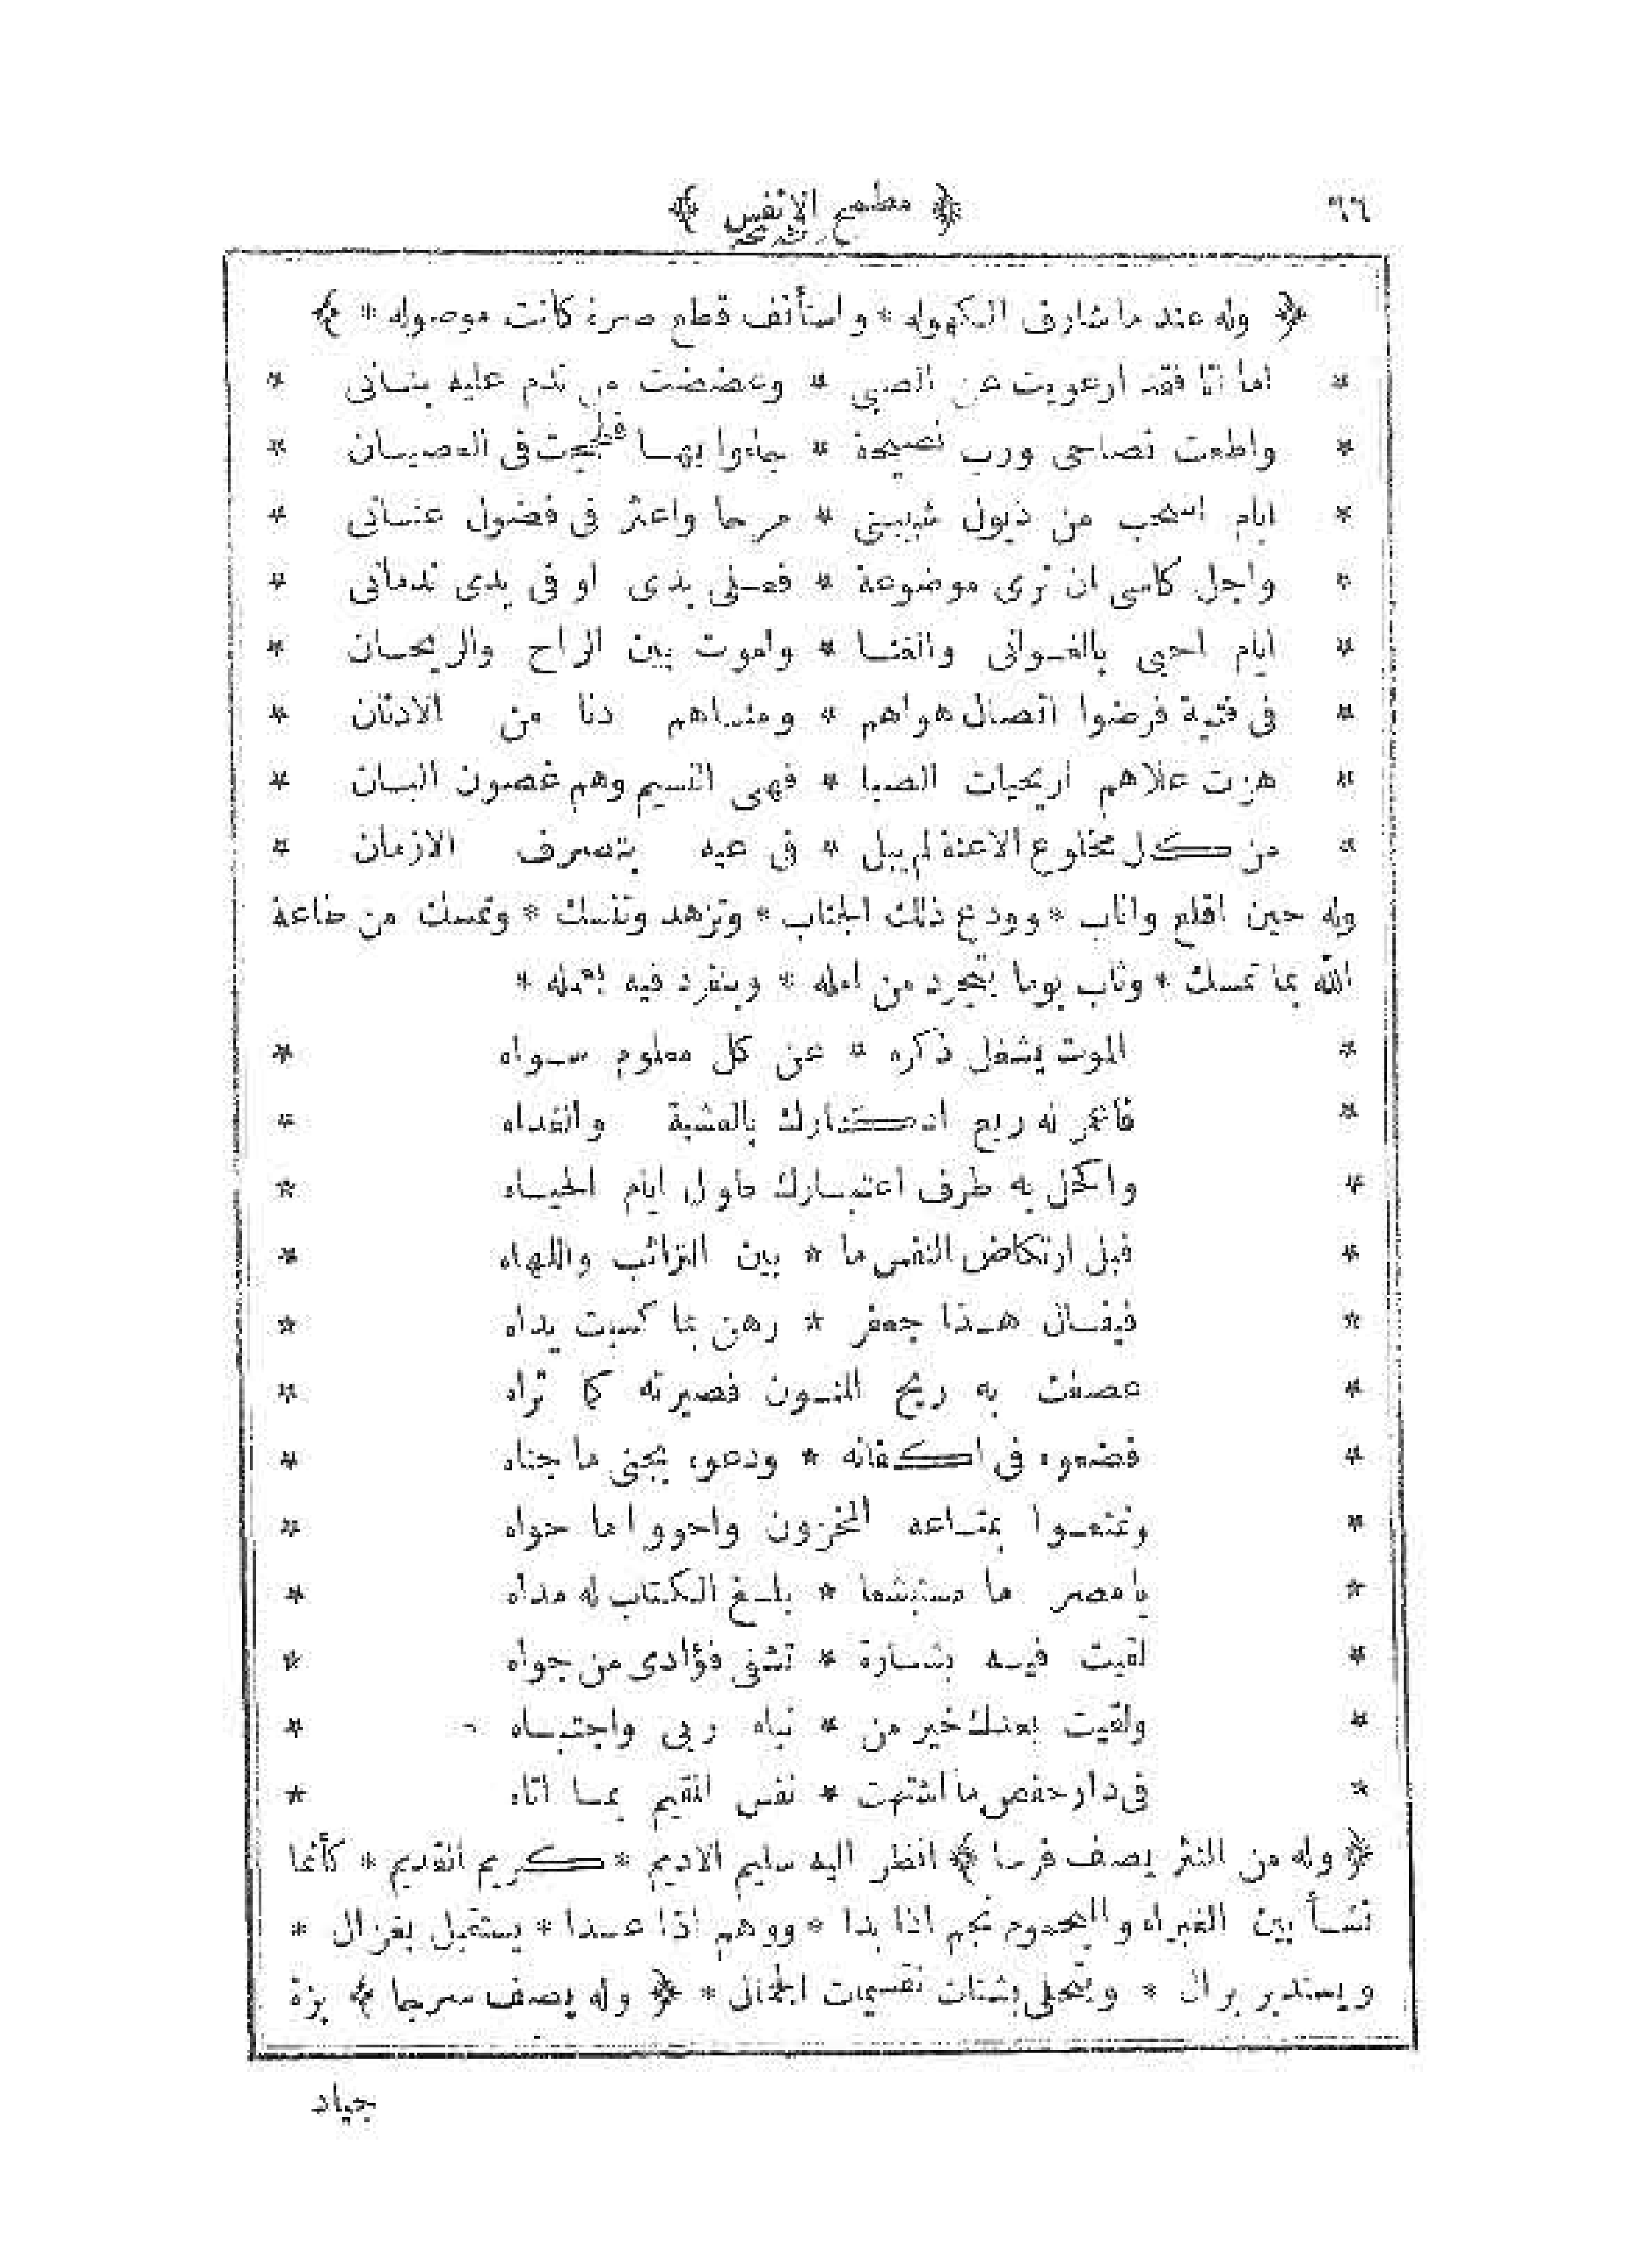 ٦٦ ﴿ مطمح الانفس ﴾
﴿ وله عند ما شارف الكهوله * واستأنف قطع صرة كانت موصوله * ﴾
* اما انا فقد ارعويت عن الصبى * وعضضت من ندم عليه بنانى *
* واطعت نصاحى ورب نصيحة * جاءوا بها فلججت فى العصيان *
* ايام اسحب من ذيول شبيبتى * مرحا واعثر فى فضول عنانى *
* واجل كاسى ان ترى موضوعة * فعلى يدى او فى يدى ندمانى *
* ايام احيى بالغوانى والغنا * واموت بين الراح والريحان *
* فى فتية فرضوا اتصال هواهم * ومناهم دنا من الادنان *
* هزت علاهم اريحيات الصبا * فهى النسيم وهم غصون البان *
* من كل مخلوع الاعنة لم يبل * فى غيه بتصرف الازمان *
وله حين اقلع واناب * وودع ذلك الجناب * وتزهد وتنسك * وتمسك من طاعة
الله بما تمسك * وتاب يوما يتجرد من امله * وينفرد فيه بعمله *
* الموت يشغل ذكره * عن كل معلوم سواه *
* فاعمر له ربع ادكارك بالعشية والغداه *
* واكحل به طرف اعتبارك طول ايام الحياه *
* قبل ارتكاض النفس ما * بين الترائب واللهاه *
* فيقال هذا جعفر * رهن بما كسبت يداه *
* عصفت به ريح المنون فصيرته كما تراه *
* فضعوه فى اكفانه * ودعوه يجنى ما جناه *
* وتمتعوا بمتاعه المخزون واحووا ما حواه *
* يا مصر ما مستبشعا * بلغ الكتاب له مداه *
* لقيت فيه بشارة * تشفى فؤادى من جواه *
* ولقيت بعدك خير من * نباه ربى واجتباه *
* فى دار حفص ما اشتهت * نفس المقيم بما اتاه *
﴿ وله من النثر يصف فرسا ﴾ انظر اليه سليم الاديم * كريم القديم * كأنما
نشأ بين الغبراء واليحموم نجم اذا بدا * ووهم اذا عدا * يستقبل بغزال *
ويستدبر برال * ويتحلى بشتات تقسيمات الجمال * ﴿ وله يصف سرجا ﴾ بزة
جياد